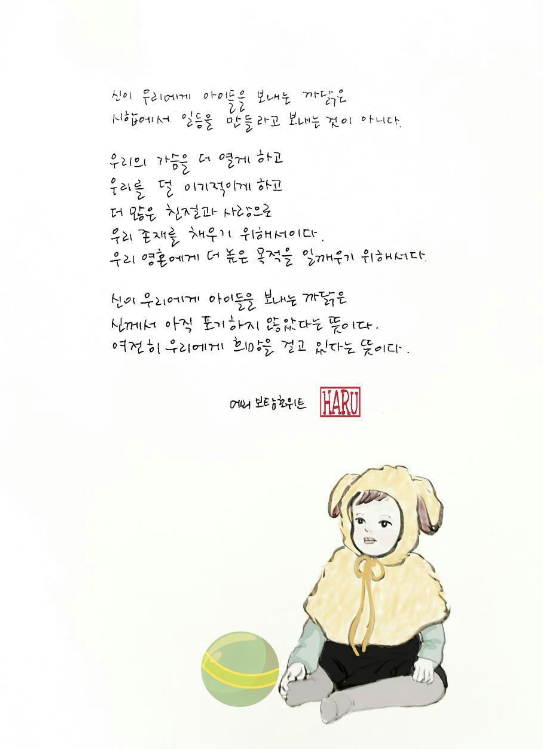 신이 우리에게 아이들을 보내는 까닭은
시합에서 일등을 만들라고 보내는 것이 아니다.
우리의 가슴을 더 열게 하고
우리를 덜 이기적이게 하고
더 많은 친절과 사랑으로
우리 존재를 채우기 위해서이다.
우리 영혼에게 더 높은 목적을 일깨우기 위해서다.
신이 우리에게 아이들을 보내는 까닭은
신께서 아직 포기하지 않았다는 뜻이다.
여전히 우리에게 희망을 걸고 있다는 뜻이다.
메리 보탐호위트 HARU